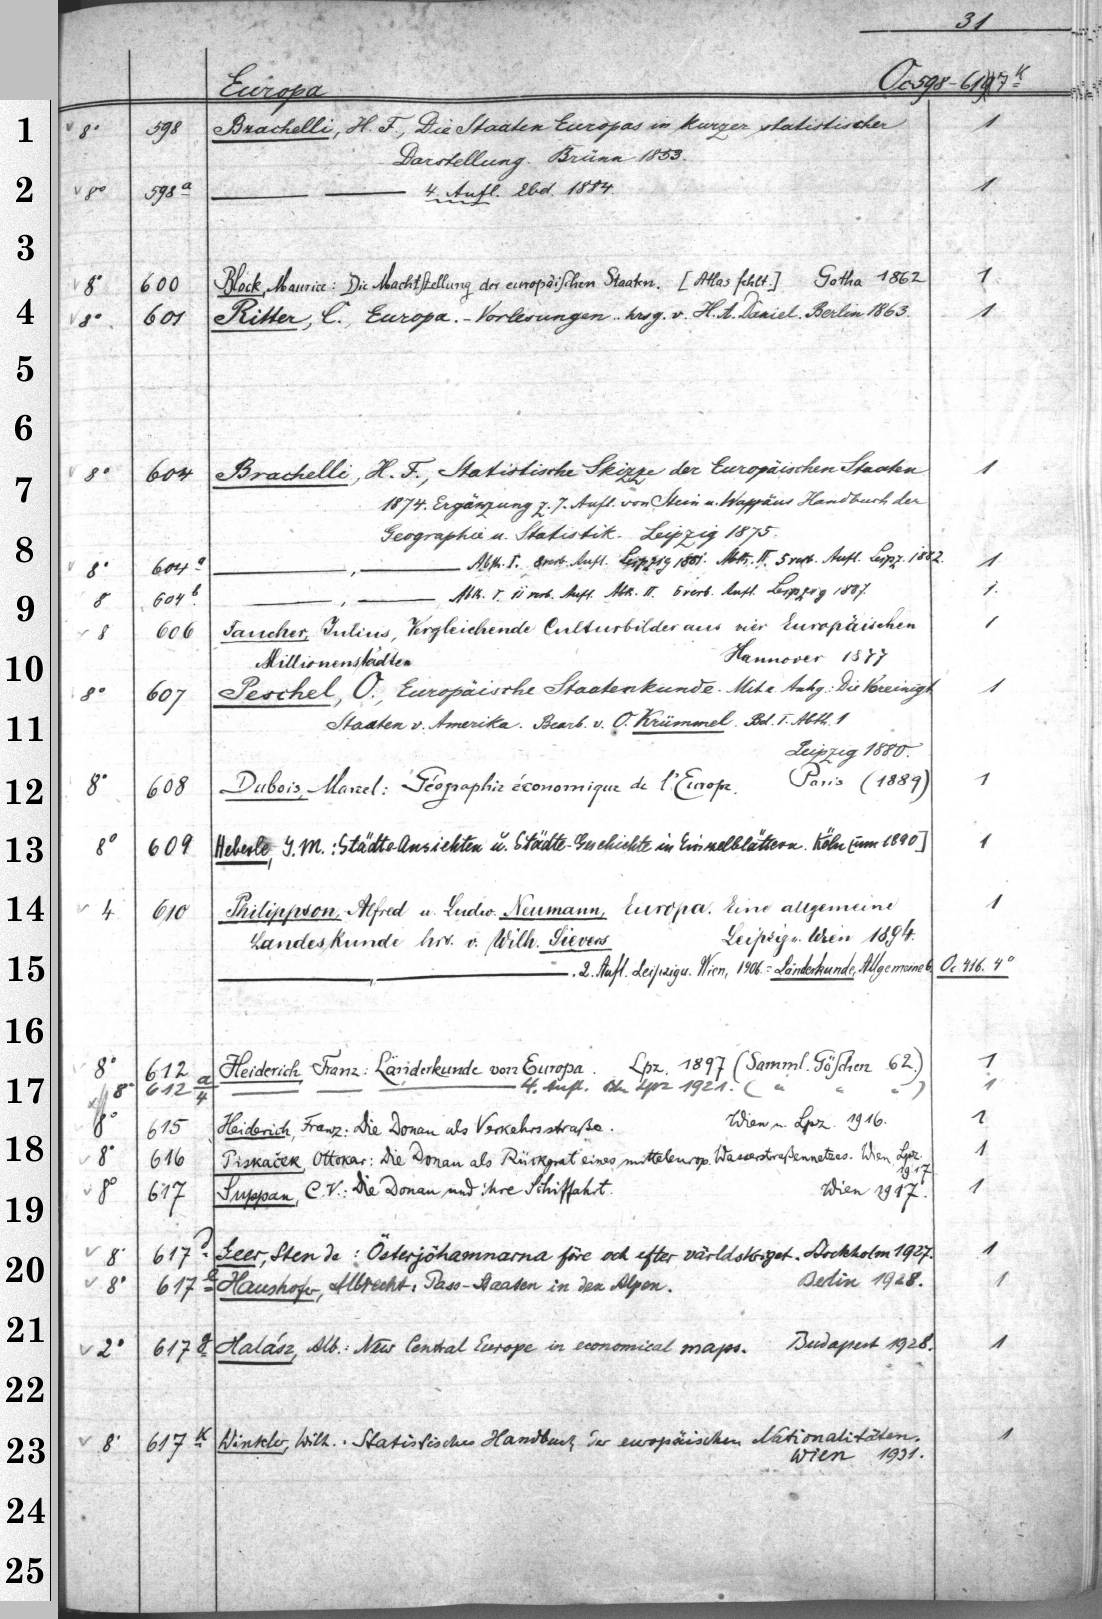 31
Europa Oc 598-617 k
1
8° 598 Brachelli, H. F., Die Staaten Europas in kurzer statistischer 1
Darstellung. Brünn 1853.
2
8° 598a 4. Aufl. Ebd 1884. 1
3
8° 600 Block, Maurice: Die Machtstellung der europäischen Staaten. [Atlas fehlt.] Gotha 1862 1
4
8° 601 Ritter, C., Europa. - Vorlesungen.. hrsg. v. H. A. Daniel. Berlin 1863. 1
5
6
8° 604 Brachelli, H. F., Statistische Skizze der Europäischen Staaten 1
7
1874. Ergänzung z. 7. Aufl. von Stein u. Wappäus Handbuch der
Geographie u. Statistik. Leipzig 1875.
8
8° 604a , Abth. I. 8 verb. Aufl. Leipzig 1881. Abth. II. 5 verb. Aufl. Leipz. 1882. 1
9
8 604b , Abth. I. 11 verb. Aufl. Abth. II. 6 verb. Aufl. Leipzig 1887. 1.
8 606 Faucher, Julius, Vergleichende Culturbilder aus vier Europäischen 1
10
Millionenstädten Hannover 1877
8° 607 Peschel, O., Europäische Staatenkunde. Mit e. Anhg.: Die Vereinigt. 1
11
Staaten v. Amerika. Bearb. v. O. Krümmel. Bd. I. Abth. 1
Leipzig 1880.
12
8° 608 Dubois, Marcel: Géographie économique de l'Europe. Paris (1889) 1
13
8° 609 Heberle, J. M.: Städte-Ansichten u. Städte-Geschichte in Einzelblättern. Köln [um 1890] 1
14
4 610 Philippson, Alfred u. Ludw. Neumann, Europa. Eine allgemeine 1
Landeskunde hrs. v. Wilh. Sievers Leipzig u. Wien 1894.
15
, . 2. Aufl. Leipzig u. Wien, 1906. = Länderkunde, Allgemeine 6. Oc 416. 4°
16
8° 612 Heiderich Franz: Länderkunde von Europa. Lpz. 1897 (Samml. Göschen 62.) 1
17
8° 612 a/4 4. Aufl. Lpz 1921. ( " " " ) 1
8° 615 Heiderich, Franz: Die Donau als Verkehrsstraße. Wien u. Lpz. 1916. 1
18
8° 616 Piskaček, Ottokar: Die Donau als Rückgrat eines mitteleurop. Wasserstraßennetzes. Wien, Lpz. 1
1917
8° 617 Suppan, C. V.: Die Donau und ihre Schiffahrt. Wien 1917. 1
19
20
8° 617 Geer, Sten de: Österjöhamnarna före och efter världskriget. Stockholm 1927. 1
8° 617 e Haushofer, Albrecht: Pass-Staaten in den Alpen. Berlin 1928. 1
21
2° 617 g Halász, Alb.: New Central Europe in economical maps. Budapest 1928. 1
22
23
8° 617 k Winkler, Wilh.: Statistisches Handbuch der europäischen Nationalitäten. 1
Wien 1931.
24
25